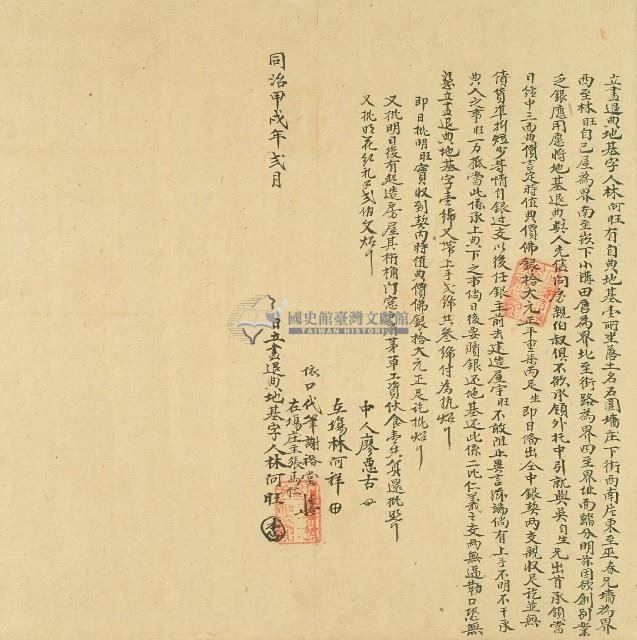 立盡退典地基字人林阿旺有自典地基壹所坐落土名石圍墻庄下街西南片東至巫春兄墻為界
西至林旺自己屋為界南至崁下小溝田唇為界北至街路為界四至界址面踏分明茲因欲創別業
乏銀應用愿將地基退典與人先儘問房親伯叔俱不欲承領外托中引就與吳自生兄出首承領當
日經中三面典價言定時值典價佛銀拾大元正重柒兩足生即日僑出仝中銀契兩交親收足訖並無
債貨準折短少等情自銀過交以後任銀主前去建造屋宇旺不敢阻止異言滋端倘有上手不明不干承
典人之事旺一力抵當此係承上典下之事倘日後要贖銀還地基還此係二比仁義之交兩無逼勒口恐無
憑立盡退典地基字壹紙又帶上手弍紙共叁紙付為執炤
即日批明旺實收到契內時值典價佛銀拾大元正足訖批炤
又批明日後有起造房屋其桁桷門窓茅草工資伙食壹共算還批照
又批明花紅礼弍佰文炤
中人廖恩古
在塲林阿祥
依口代筆謝裕堂
在塲庄主張馬
日立盡退典地基字人林阿旺
同治甲戌年弍月
國史館臺灣文獻館
TAIWAN HISTORICA